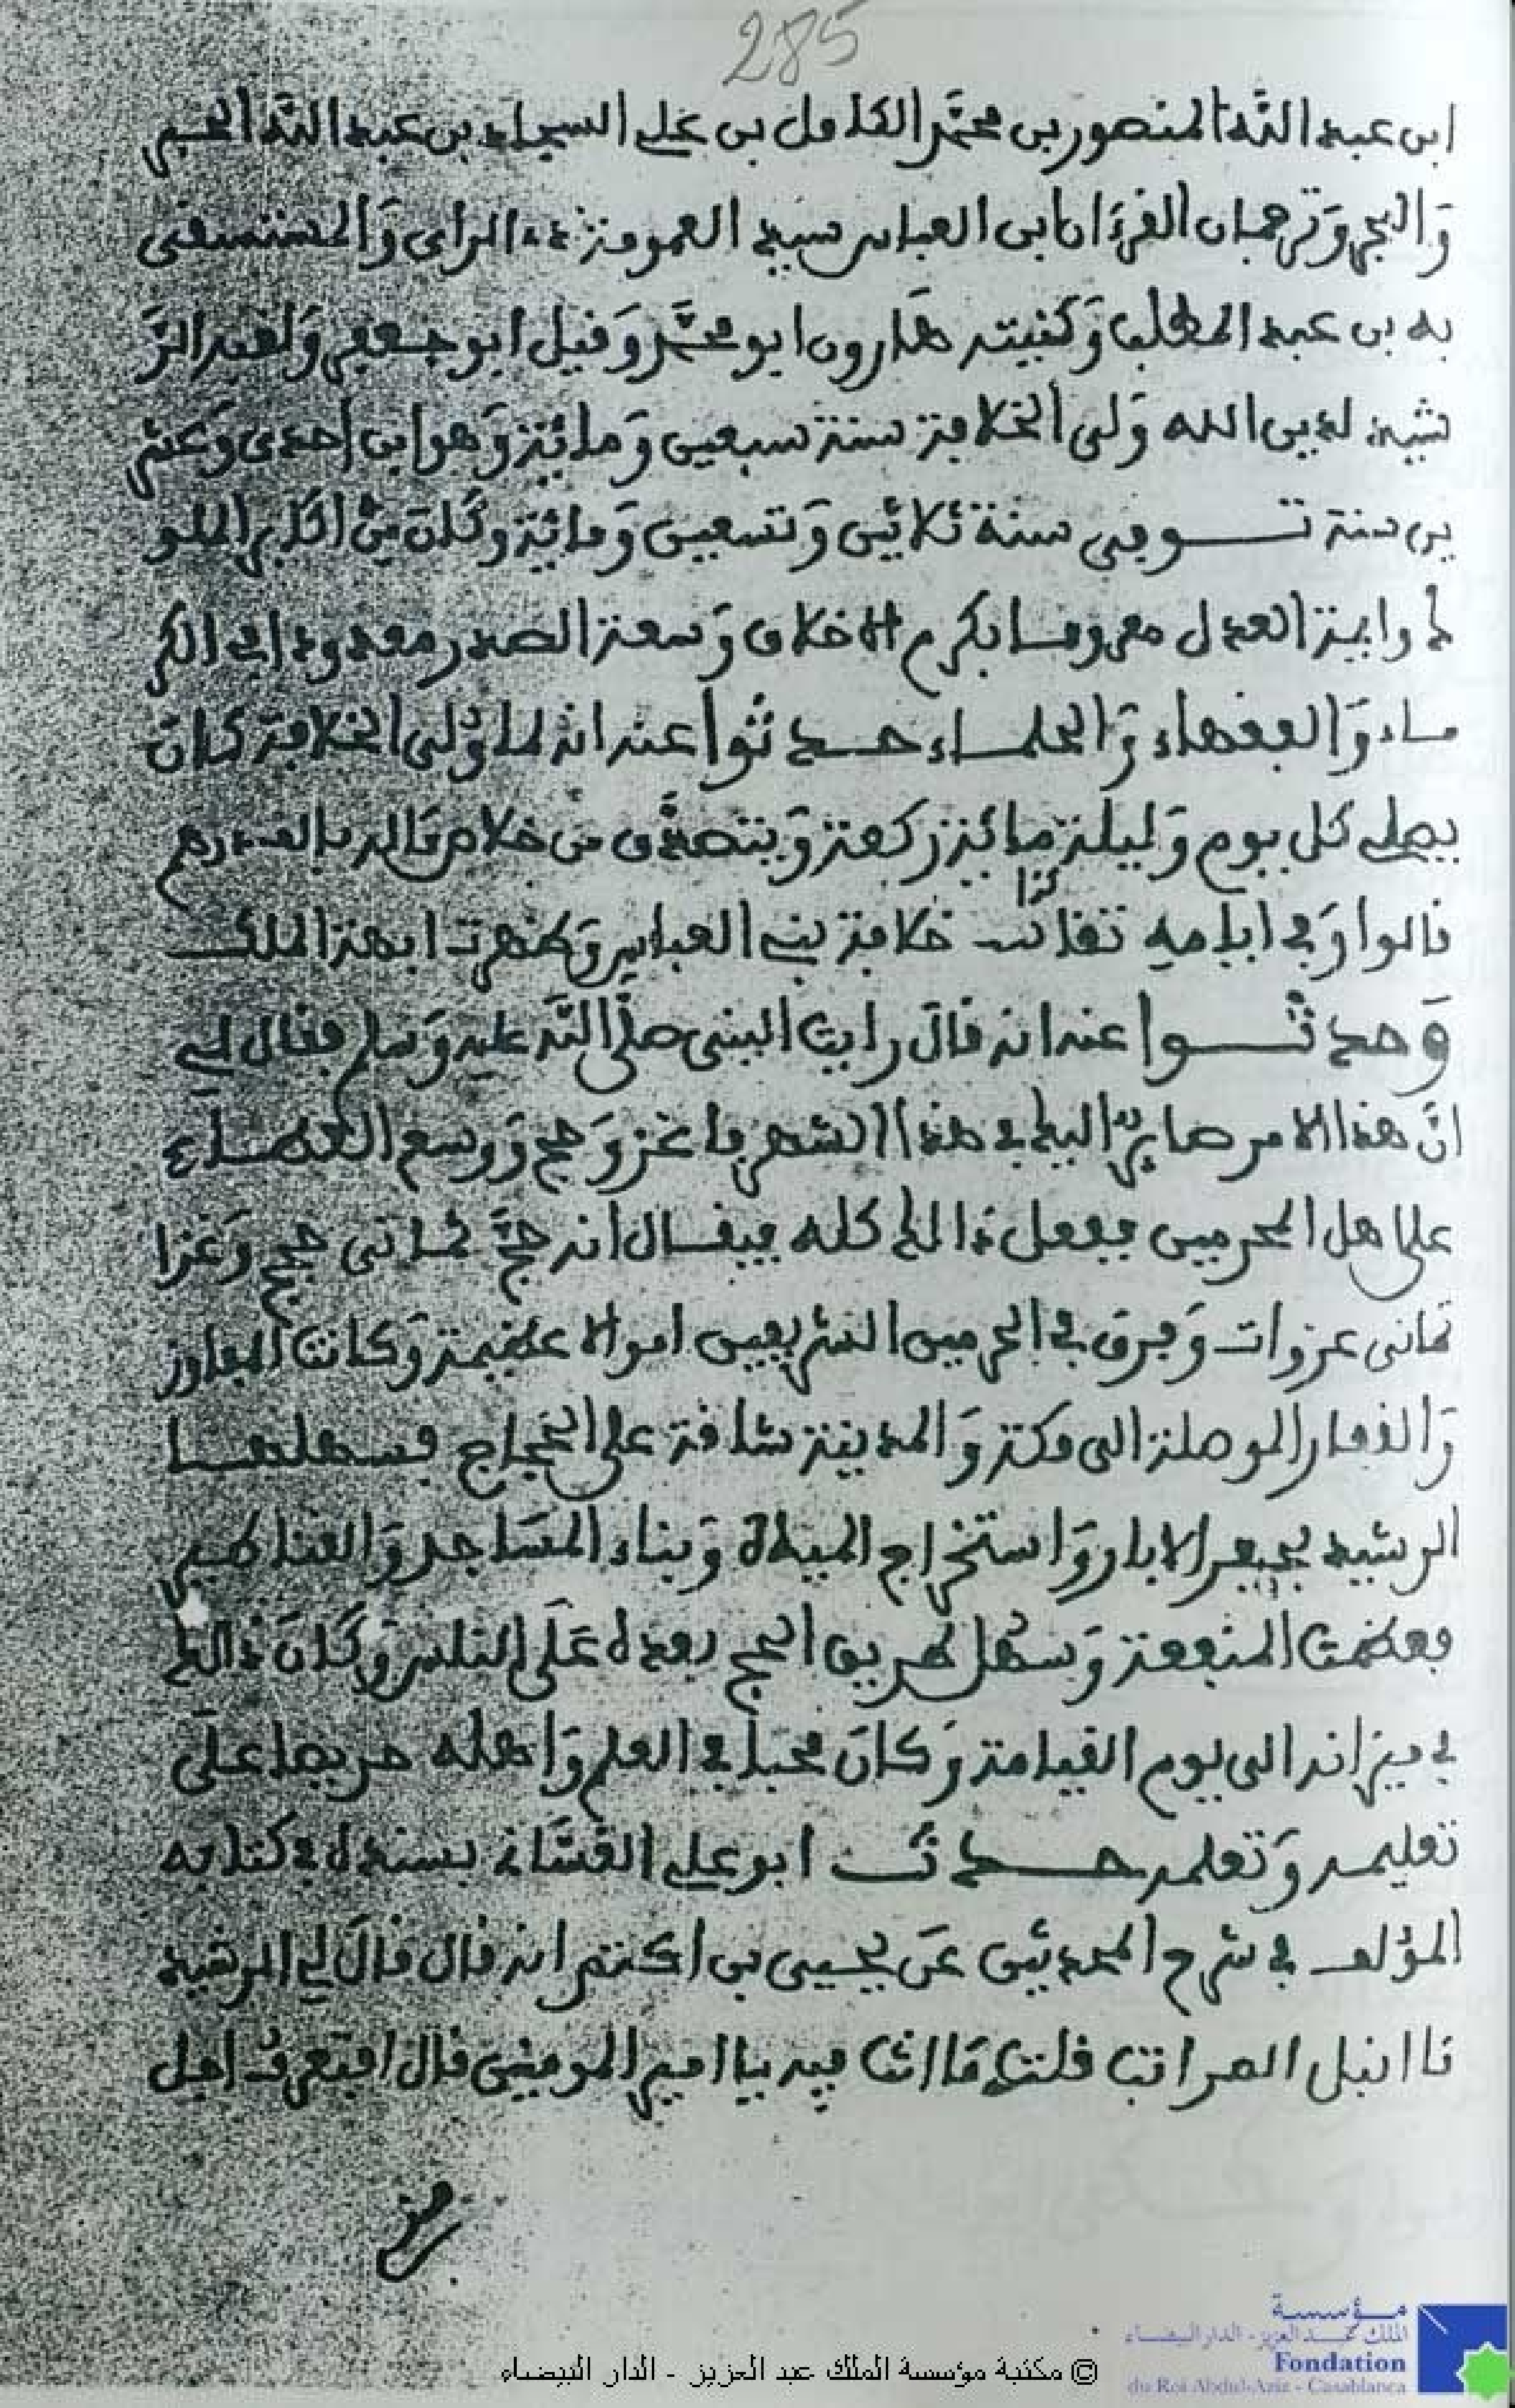 285
ابن عبد الله المنصور بن محمد الكامل بن علي السجاد بن عبد الله الحبر
وَالبحر وَترجمان القرءان ابن العباس سيد العمومة ذي الراي وَالمستسقى
به بن عبد المطلب وَكنيته هارون ابو محمد وَقيل ابو جعفر وَلقبه الرَّ
شيد لدين الله وَلى الخلافة سنة سبعين وَمائة وَهو ابن احدى وَعشر
ين سنة تــوفى سنة ثلاثين وَتسعين وَمائة وكَان مِن اكابر الملو
ك وابية العدل معروفا بكرم الاخلاق وَسعة الصدر معدودا في الكر
ماء وَالفقهاء وَالحلماء حــدثوا عنه انه لما وُلى الخلافة كان
يصلى كل يوم وَليلة مائة ركعة وَيتصدَّق من خلاص مَاله بالف درهم
قالوا وَفى ايامه تفانت كذا خلافة بني العباس وَظهرت ابهة الملك
وَحدثــوا عنه انه قال رايت النبى صلَّى الله عليه وَسلم فقال لي
انَّ هذا الامر صاير اليك في هذا الشهر فاغز وَحج وَوسع العطاء
على اهل الحرمين ففعل ذالك كله فيقال انه حجَّ ثمانى حجج وَغزا
ثمانى غزوات وَفرق في الحرمين الشريفين اموالا عظيمة وَكانت المفاوز
وَالقفار الموصلة الى مكة وَالمدينة شاقة على الحجاج فسهلها
الرشيد بحفر الابار وَاستخراج المياه وَبناء المسَاجد وَالقناطير
فعظمت المنفعة وَسهُل طريق الحج بعده عَلَى الناس وَكَانَ ذالك
في ميزانه الى يوم القيامة وَكان محبا في العلم وَاهله حريصا على
تعليمه وَتعلمه حــدث ابو علي القسَّانى بسنده في كتابه
المؤلف في شرح المحدثين عَن يحيى بن اكثم انه قال قالَ لي الرشيد
ما انبل المراتب قلت مَا انت فيه يا امير المومنين قال افتعرف اجل
مني
© مكتبة مؤسسة الملك عبد العزيز - الدار البيضاء
مؤسسة
الملك عبد العزيز - الدار البيضاء
Fondation
du Roi Abdul-Aziz - Casablanca